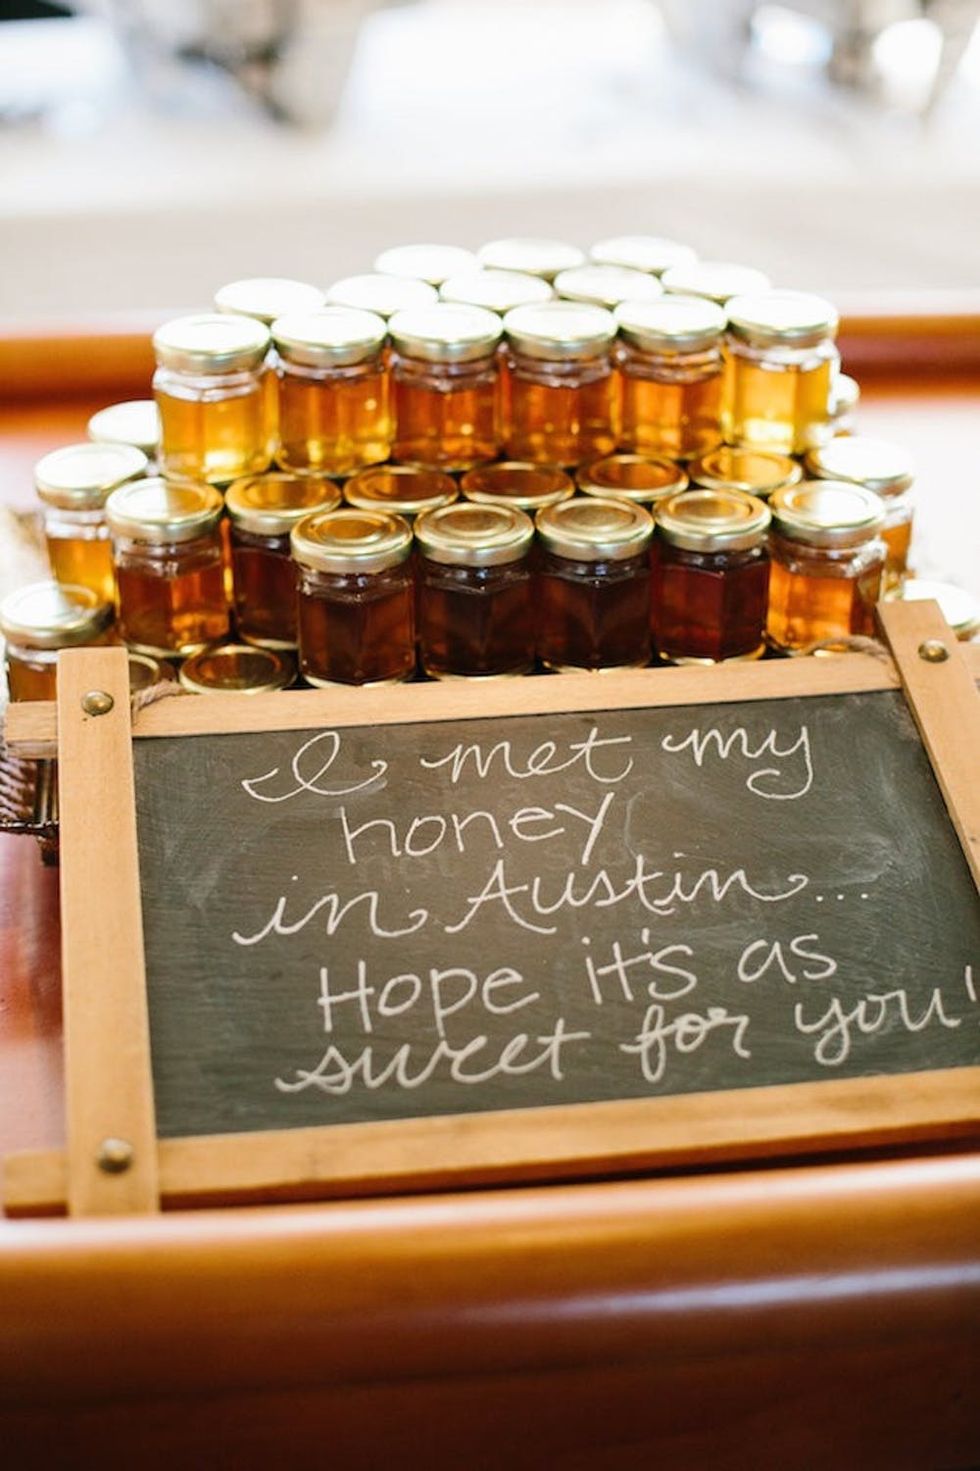 I met my
honey
in Austin...
Hope it's as
sweet for you!